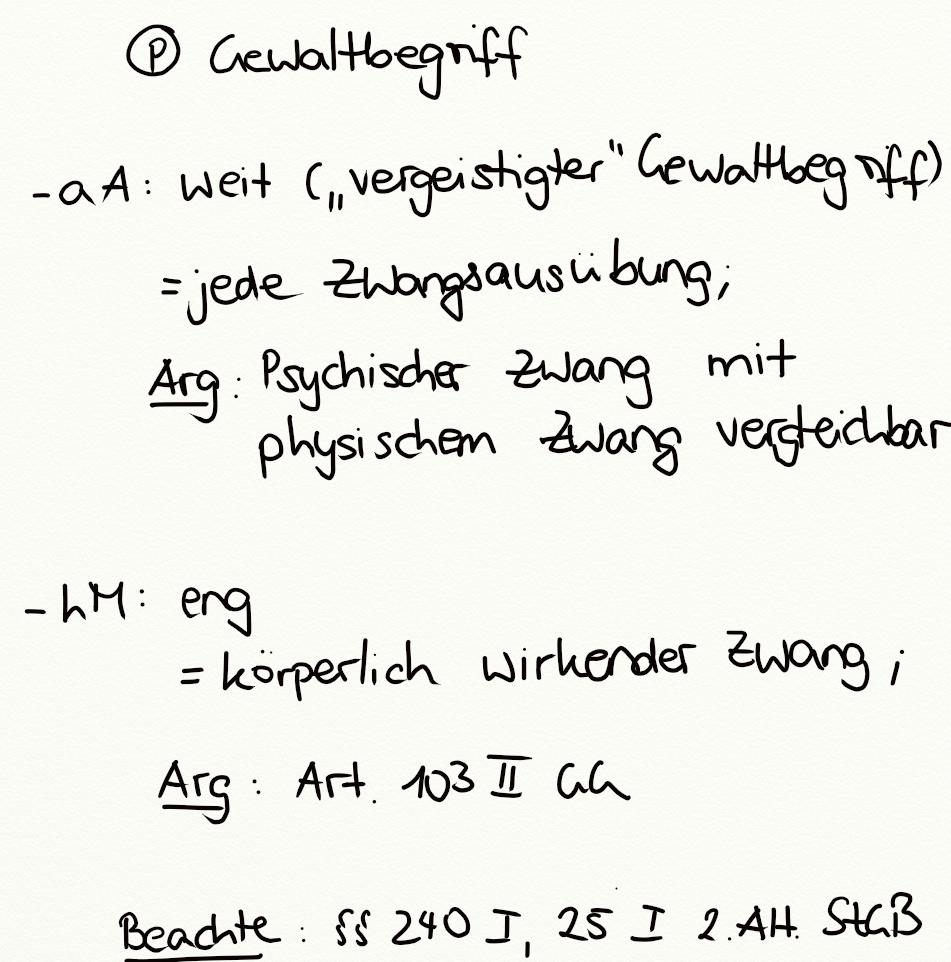 Ⓟ Gewaltbegriff
- aA: weit („vergeistigter" Gewaltbegriff)
= jede Zwangsausübung;
Arg: Psychischer Zwang mit
physischem Zwang vergleichbar
- hM: eng
= körperlich wirkender Zwang;
Arg: Art. 103 II GG
Beachte: §§ 240 I, 25 I 2. Alt. StGB